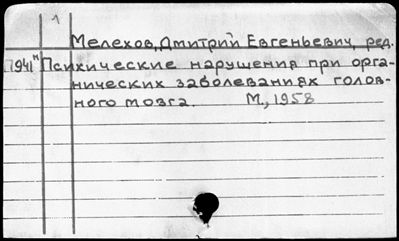 1
Мелехов, Дмитрий Евгеньевич, ред.
7941н Психические нарушения при орга-
нических заболеваниях голов-
ного мозга. М., 1958